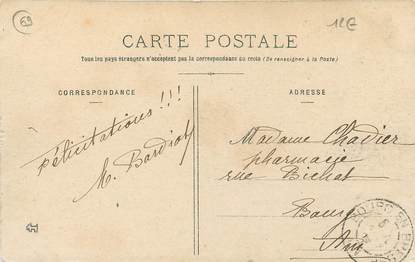 69
12€
CARTE POSTALE
Tous les pays étrangers n'acceptent pas la correspondance au recto (Se renseigner à la Poste)
CORRESPONDANCE
ADRESSE
Félicitations!!!
Madame Chadier
pharmacie
rue Bichat
Bourg
Ain